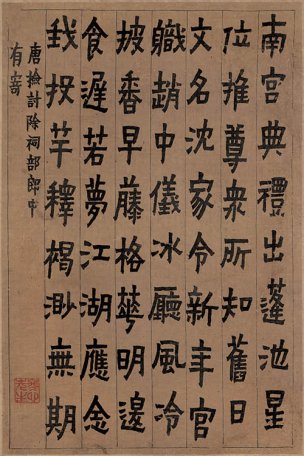 南宮典禮出蓬池星
位推尊衆所知舊日
文名沈家令新年官
職趙中儀冰廳風冷
披番早藤格華明邊
食遲若夢江湖應念
我投竿釋褐渺無期
唐撿討除祠部郎中
有寄